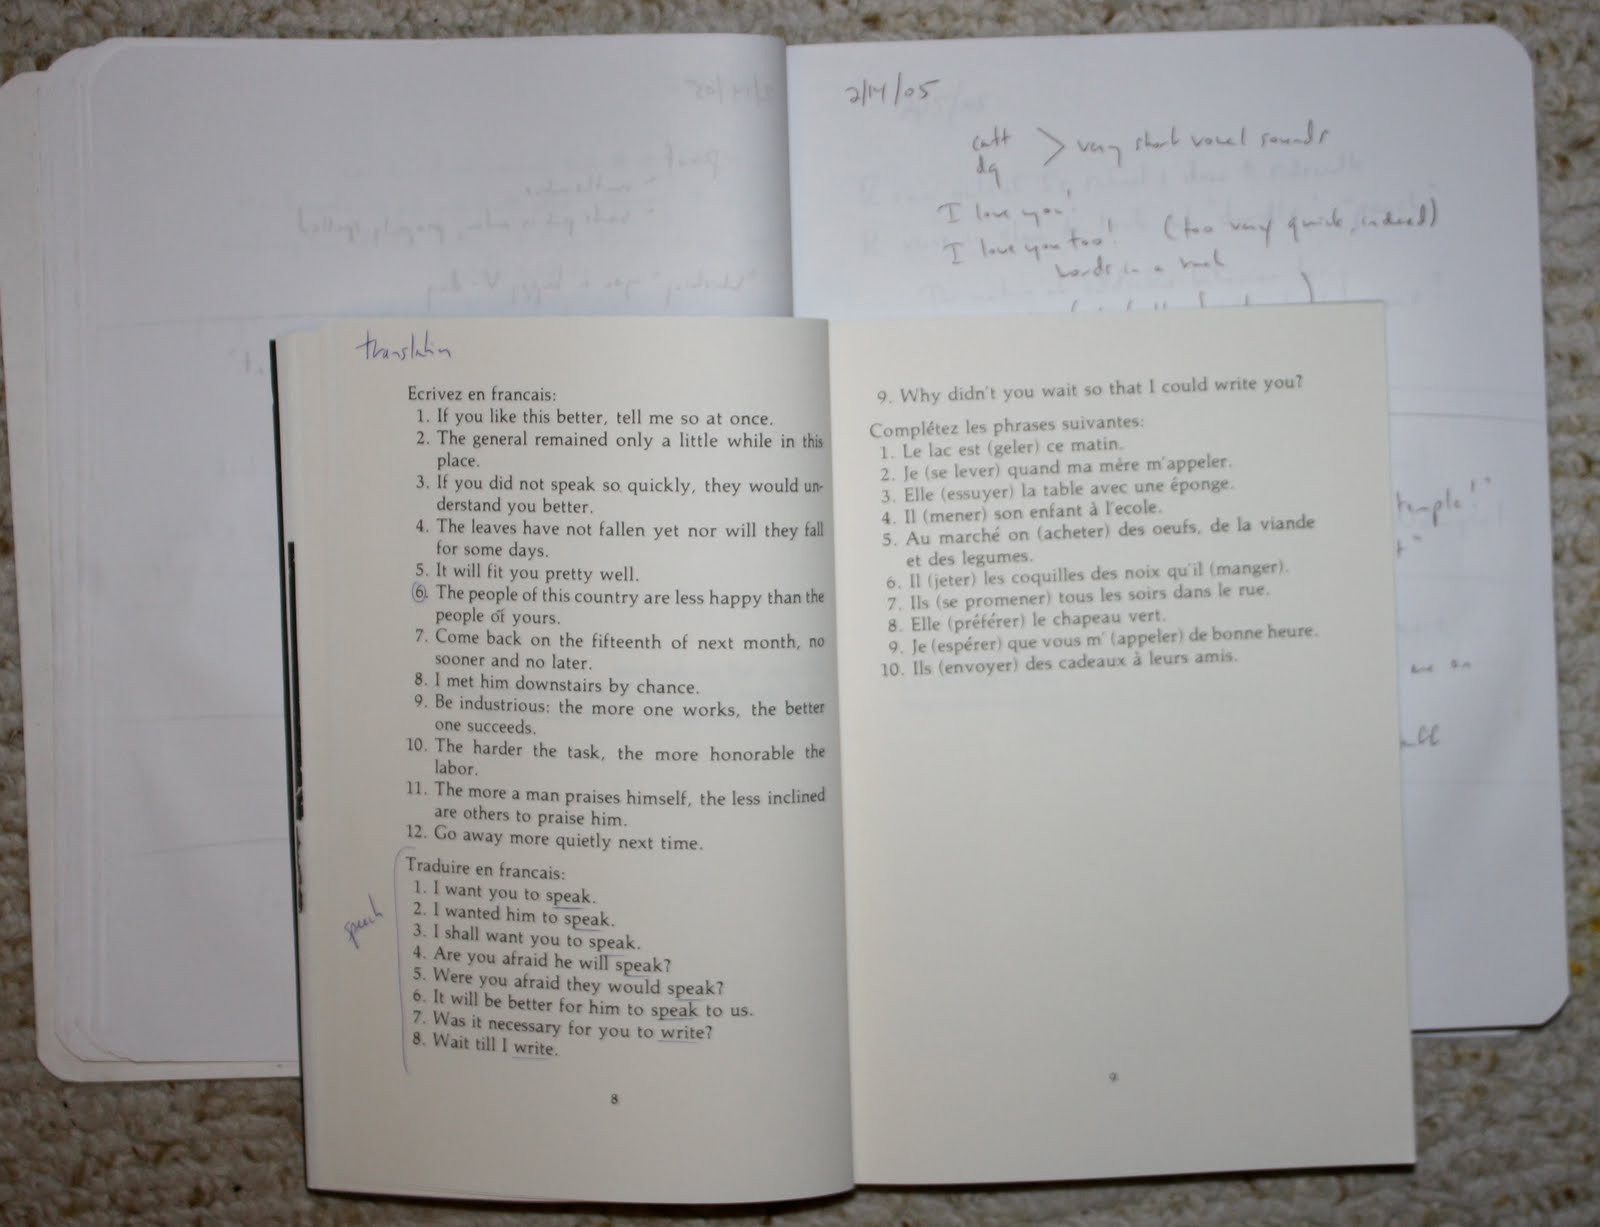 2/14/05
very short vowel sounds
dg
I love you!
I love you too! (too very quick, indeed)
words in a
temple!"
translation
Ecrivez en francais:
1. If you like this better, tell me so at once.
2. The general remained only a little while in this
place.
3. If you did not speak so quickly, they would un-
derstand you better.
4. The leaves have not fallen yet nor will they fall
for some days.
5. It will fit you pretty well.
6. The people of this country are less happy than the
people of yours.
7. Come back on the fifteenth of next month, no
sooner and no later.
8. I met him downstairs by chance.
9. Be industrious: the more one works, the better
one succeeds.
10. The harder the task, the more honorable the
labor.
11. The more a man praises himself, the less inclined
are others to praise him.
12. Go away more quietly next time.
Traduire en francais:
1. I want you to speak.
2. I wanted him to speak.
speech
3. I shall want you to speak.
4. Are you afraid he will speak?
5. Were you afraid they would speak?
6. It will be better for him to speak to us.
7. Was it necessary for you to write?
8. Wait till I write.
8
9. Why didn't you wait so that I could write you?
Complétez les phrases suivantes:
1. Le lac est (geler) ce matin.
2. Je (se lever) quand ma mère m'appeler.
3. Elle (essuyer) la table avec une éponge.
4. Il (mener) son enfant à l'ecole.
5. Au marché on (acheter) des oeufs, de la viande
et des legumes.
6. Il (jeter) les coquilles des noix qu'il (manger).
7. Ils (se promener) tous les soirs dans le rue.
8. Elle (préférer) le chapeau vert.
9. Je (espérer) que vous m' (appeler) de bonne heure.
10. Ils (envoyer) des cadeaux à leurs amis.
9